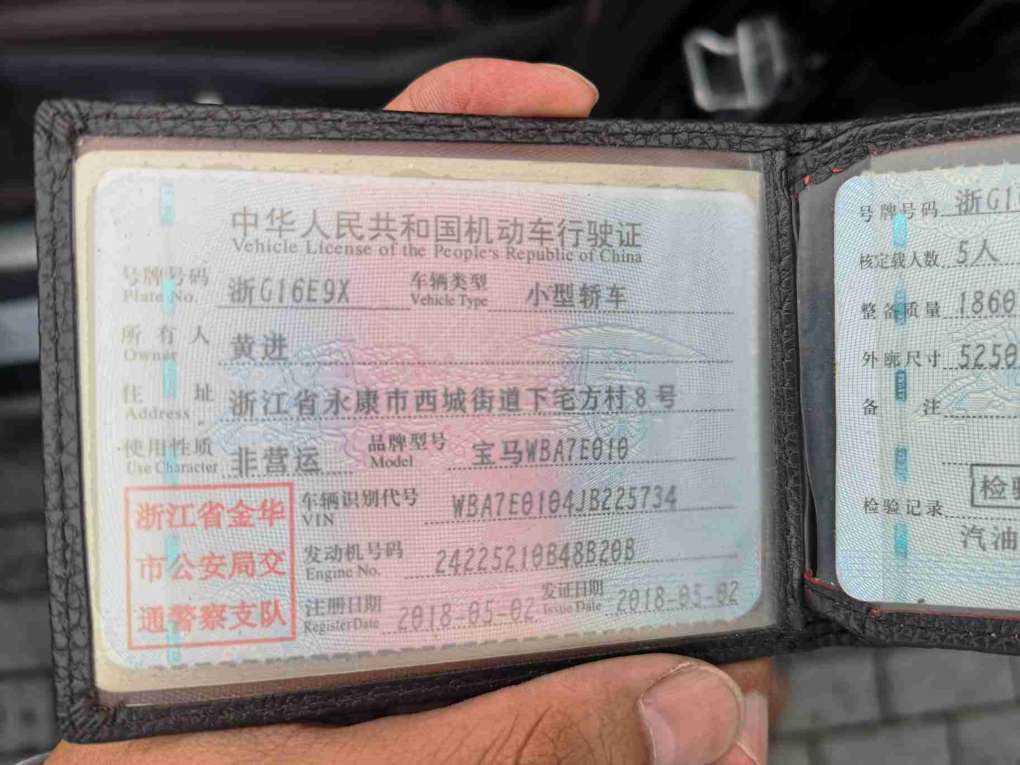 中华人民共和国机动车行驶证
Vehicle License of the People's Republic of China
号牌号码 浙G16E9X 车辆类型 小型轿车
Plate No. Vehicle Type
所有人 黄进
Owner
住址 浙江省永康市西城街道下宅方村8号
Address
使用性质 非营运 品牌型号 宝马WBA7E010
Use Character Model
浙江省金华
市公安局交
通警察支队
车辆识别代号 WBA7E0104JB225734
VIN
发动机号码 24225210B48B20B
Engine No.
注册日期 2018-05-02 发证日期 2018-05-02
Register Date Issue Date
号牌号码 浙G1
核定载人数 5人
整备质量 1860
外廓尺寸 5250
备注
检验记录
检验
汽油